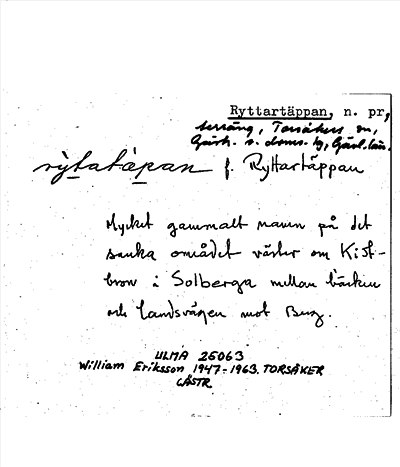 Ryttartäppan, n. pr,
terräng, Torsåkers sn,
Gästr. ö. doms. tg, Gävl. län.
rỳtatàpan f. Ryttartäppan
Mycket gammalt namn på det
sanka området väster om Kist-
bron i Solberga mellan bäcken
och landsvägen mot Berg.
ULMA 25063
William Eriksson 1947-1963. TORSÅKER
GÄSTR.